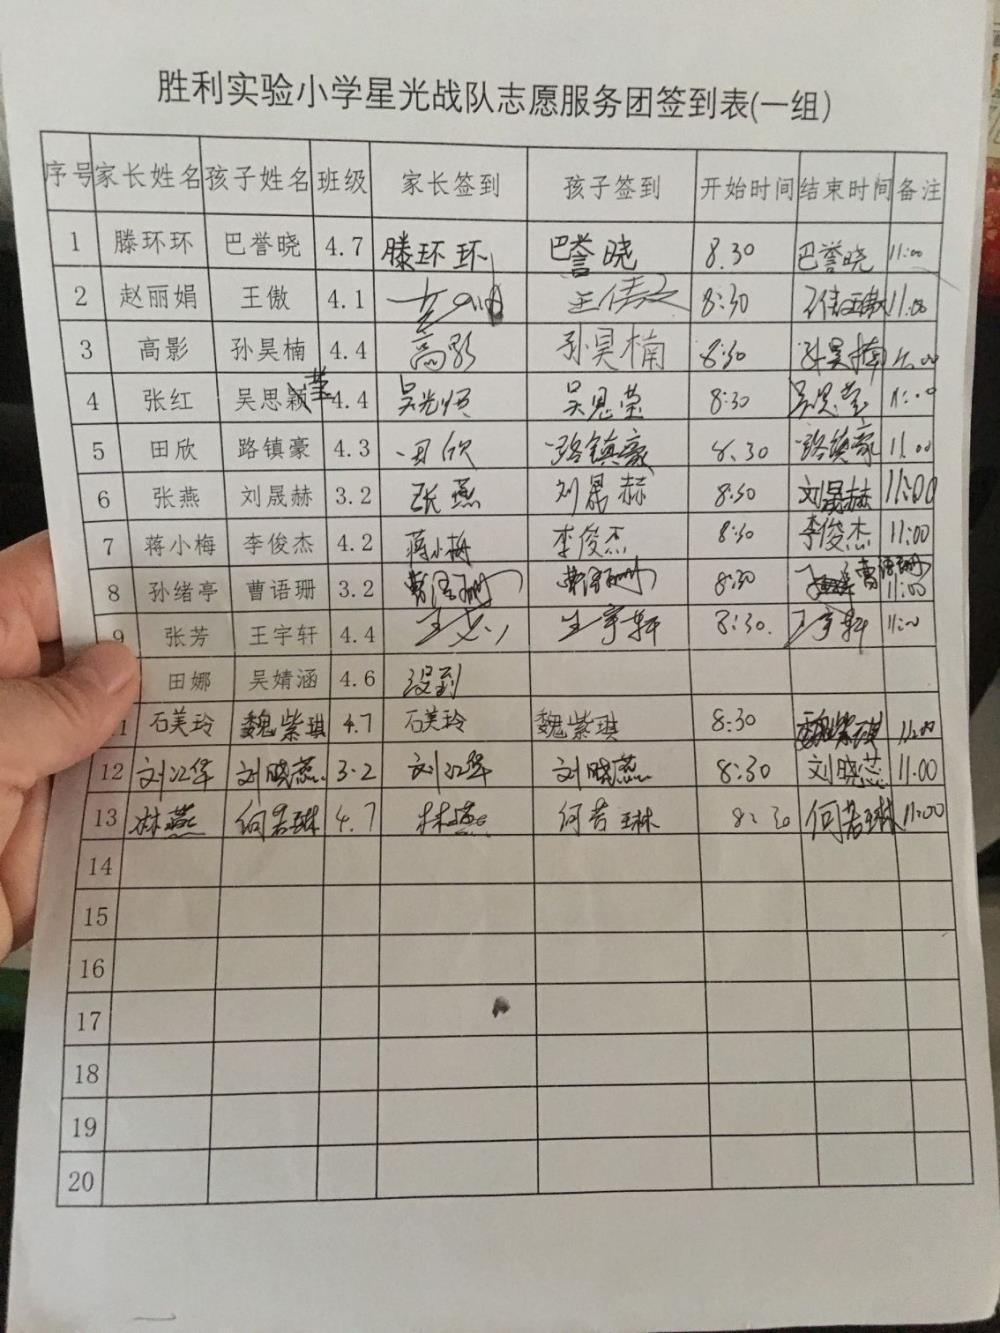 胜利实验小学星光战队志愿服务团签到表(一组)
序号 家长姓名 孩子姓名 班级 家长签到 孩子签到 开始时间 结束时间 备注
1 滕环环 巴誉晓 4.7 滕环环 巴誉晓 8.30 巴誉晓 11:00
2 赵丽娟 王傲 4.1 8:30 11:00
3 高影 孙昊楠 4.4 高影 孙昊楠 8:30 孙昊楠 11.00
4 张红 吴思颖莹 4.4 吴思莹 8:30 吴思莹 11:00
5 田欣 路镇豪 4.3 田欣 路镇豪 8.30 路镇豪 11.00
6 张燕 刘晟赫 3.2 张燕 刘晟赫 8:30 刘晟赫 11:00
7 蒋小梅 李俊杰 4.2 蒋小梅 李俊杰 8:30 李俊杰 11:00
8 孙绪亭 曹语珊 3.2 曹语珊 曹语珊 8:30 曹语珊 11:00
9 张芳 王宇轩 4.4 王宇轩 8:30. 王宇轩 11:00
田娜 吴婧涵 4.6 没到
1 石美玲 魏紫琪 4.7 石美玲 魏紫琪 8:30 魏紫琪 11:00
12 刘江华 刘晓蕊 3.2 刘江华 刘晓蕊 8:30 刘晓蕊 11.00
13 林燕 何若琳 4.7 林燕 何若琳 8:30 何若琳 11:00
14
15
16
17
18
19
20